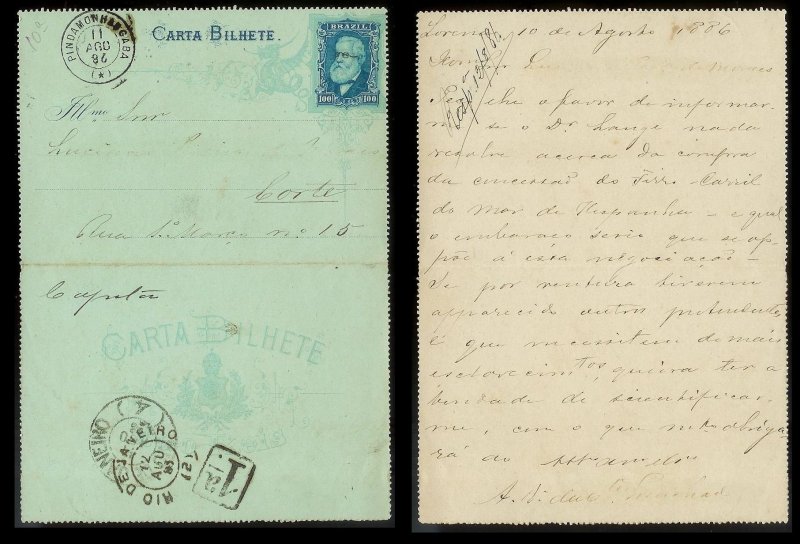 10a
PINDAMONHANGABA
11
AGO
86
(*)
CARTA BILHETE.
BRAZIL
100 100
Illmo Snr
Luciano
Corte
Rua 1º Março nº 15
Capital
CARTA BILHETE
RIO DE JANEIRO
(A)
RIO DE JANEIRO
12
AGO
(2)
T
Lorena 10 de Agosto 1886
lhe o favor de informar
me se o Dr. Lange nada
resolve acerca da compra
da concessão do Ferro-Carril
do Mar de Hespanha – e qual
o embaraço serio que se op
põe á esta negociação –
Se por ventura tiverem
apparecido outros pretendentes
é que necessitem de mais
esclarecimtos, queira ter a
bondade de scientificar
me, com o que mto obriga
rá ao
A. Vidal